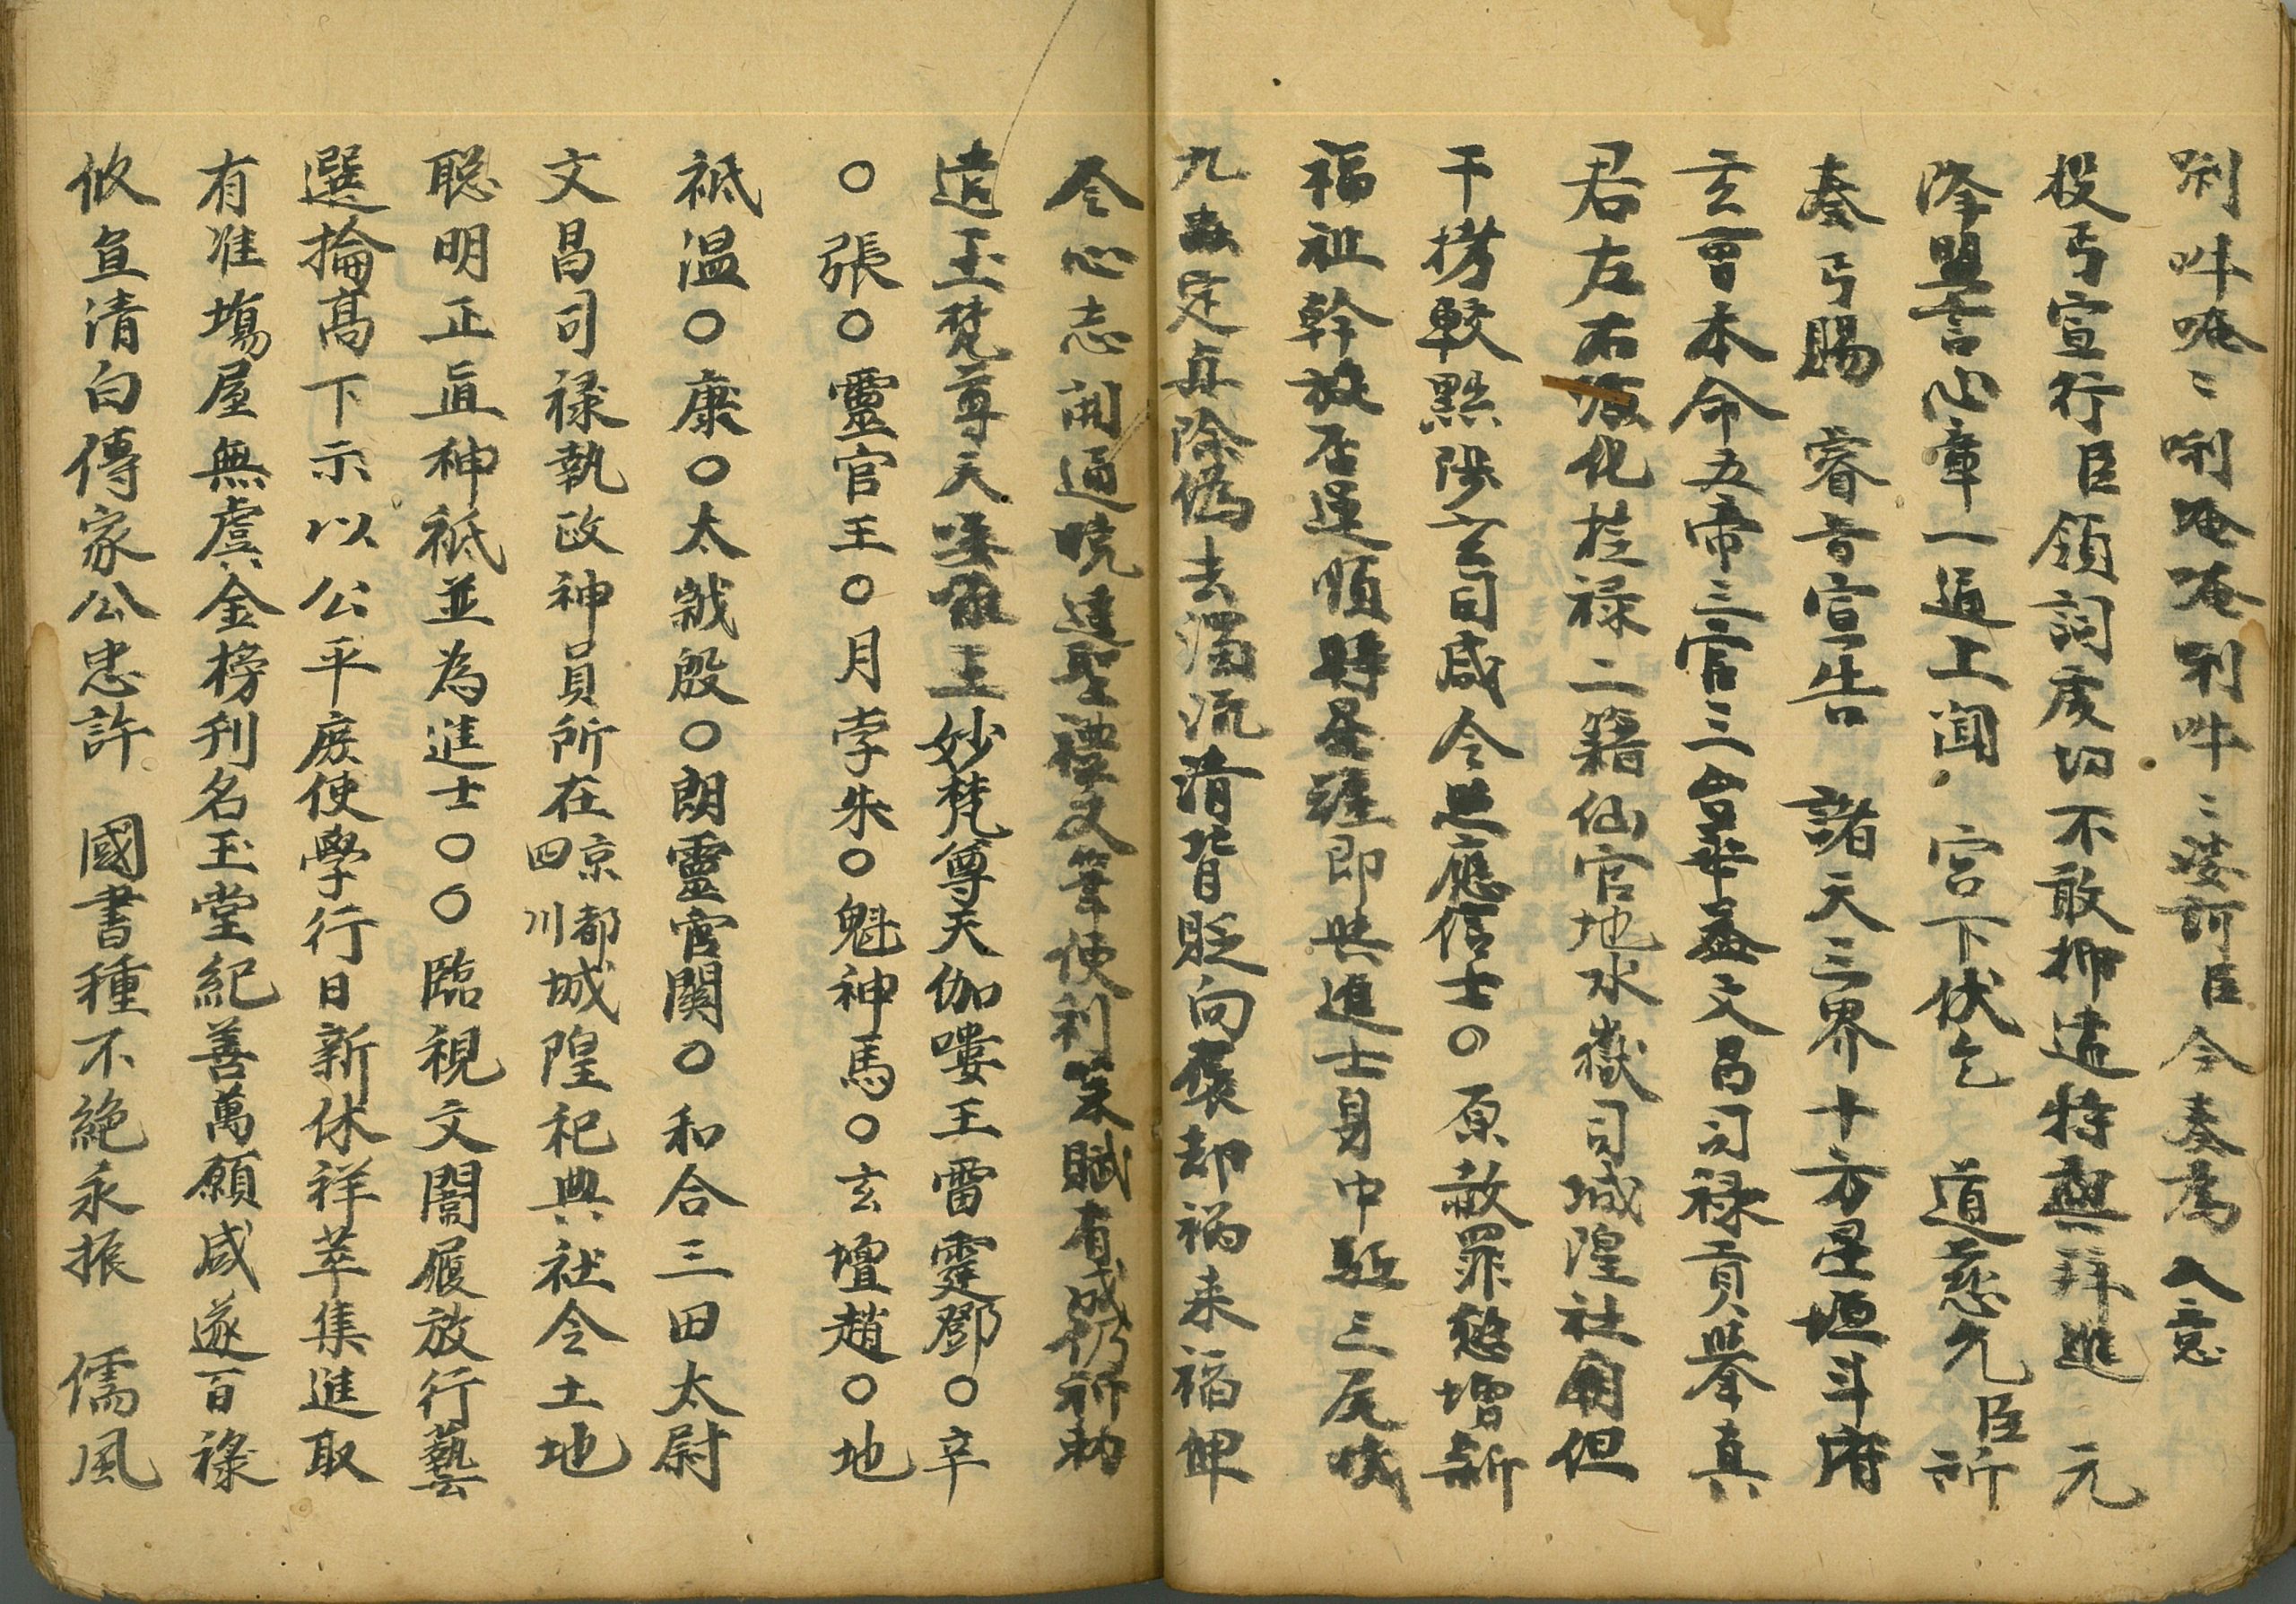 唎吽唵〻唎唵唵唎吽〻娑訶臣今奏為入意
投丐宣行臣領詞虔切不敢抑遣特與拜進 元
降盟言心章一通上聞 宮下伏乞 道慈允臣所
奏丐賜 睿旨宣告 諸天三界十方星垣斗府
玄會本命五帝三官三台華蓋文昌司禄貢舉真
君左右 化桂禄二籍仙官地水嶽司城隍社廟但
干考較點陟玄司咸令照應信士〇原赦罪愆增新
福祉幹旋否運順 星躔即與進士身中 三尸
九蟲定真除偽去濁流清背貶向褒却禍来福俾
令心志開通曉達聖禪文筆使利策賦有成仍祈勅
遣玉梵尊天婆羅王妙梵尊天伽嘍王雷霆鄧〇辛
〇張〇靈官王〇月孛朱〇魁神馬〇玄壇趙〇地
祇温〇康〇太歲殷〇朗靈官關〇和合三田太尉
文昌司禄執政神員所在京都四川城隍祀典社令土地
聡明正直神祇並為進士〇〇臨視文闈履放行藝
選掄高下示以公平庶使學行日新休祥萃集進取
有准塲屋無虞金榜刋名玉堂紀善萬願咸遂百祿
攸宜清白傳家公忠許 國書種不絶永振 儒風